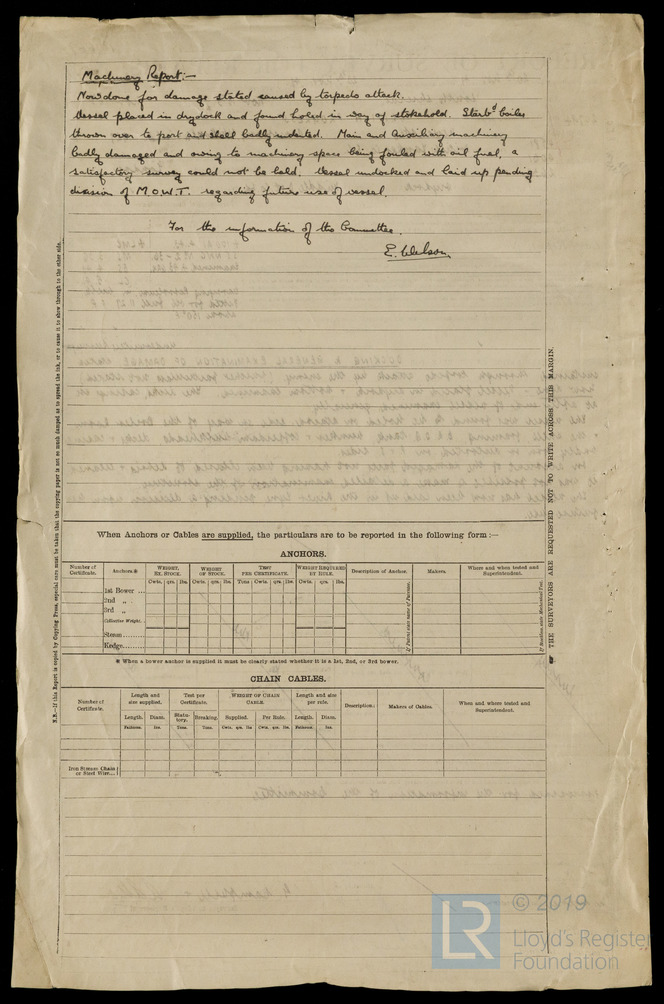 Machinery Report:-
Now done for damage stated caused by torpedo attack.
Vessel placed in drydock and found holed in way of stokehold. Starbd boiler
thrown over to port and shell badly indented. Main and Auxiliary machinery
badly damaged and owing to machinery space being fouled with oil fuel, a
satisfactory survey could not be held. Vessel undocked and laid up pending
decision of M.O.W.T. regarding future use of vessel.
For the information of the Committee.
E.
N.B.—If this Report is copied by Copying Press, especial care must be taken that the copying paper is not so much damped as to spread the ink, or to cause it to show through to the other side.
THE SURVEYORS ARE REQUESTED NOT TO WRITE ACROSS THIS MARGIN.
When Anchors or Cables are supplied, the particulars are to be reported in the following form:—
ANCHORS.
Number of Certificate. Anchors.* WEIGHT, EX. STOCK. WEIGHT OF STOCK. TEST PER CERTIFICATE. WEIGHT REQUIRED BY RULE. Description of Anchor. Makers. Where and when tested and Superintendent.
Cwts. qrs. lbs. Cwts. qrs. lbs. Tons Cwts. qrs. lbs. Cwts. qrs. lbs.
1st Bower ...
2nd „
3rd „
Collective Weight
Stream
Kedge
If Patent state name of Patentee.
* When a bower anchor is supplied it must be clearly stated whether it is a 1st, 2nd, or 3rd bower.
CHAIN CABLES.
Number of Certificate. Length and size supplied. Test per Certificate. WEIGHT OF CHAIN CABLE. Length and size per rule. Description. Makers of Cables. Where and when tested and Superintendent.
Length. Diam. Statutory. Breaking. Supplied. Per Rule. Length. Diam.
Fathoms. Ins. Tons. Tons. Cwts. qrs. lbs. Cwts. qrs. lbs. Fathoms. Ins.
Iron Stream Chain or Steel Wire...
LR
© 2019
Lloyd's Register
Foundation